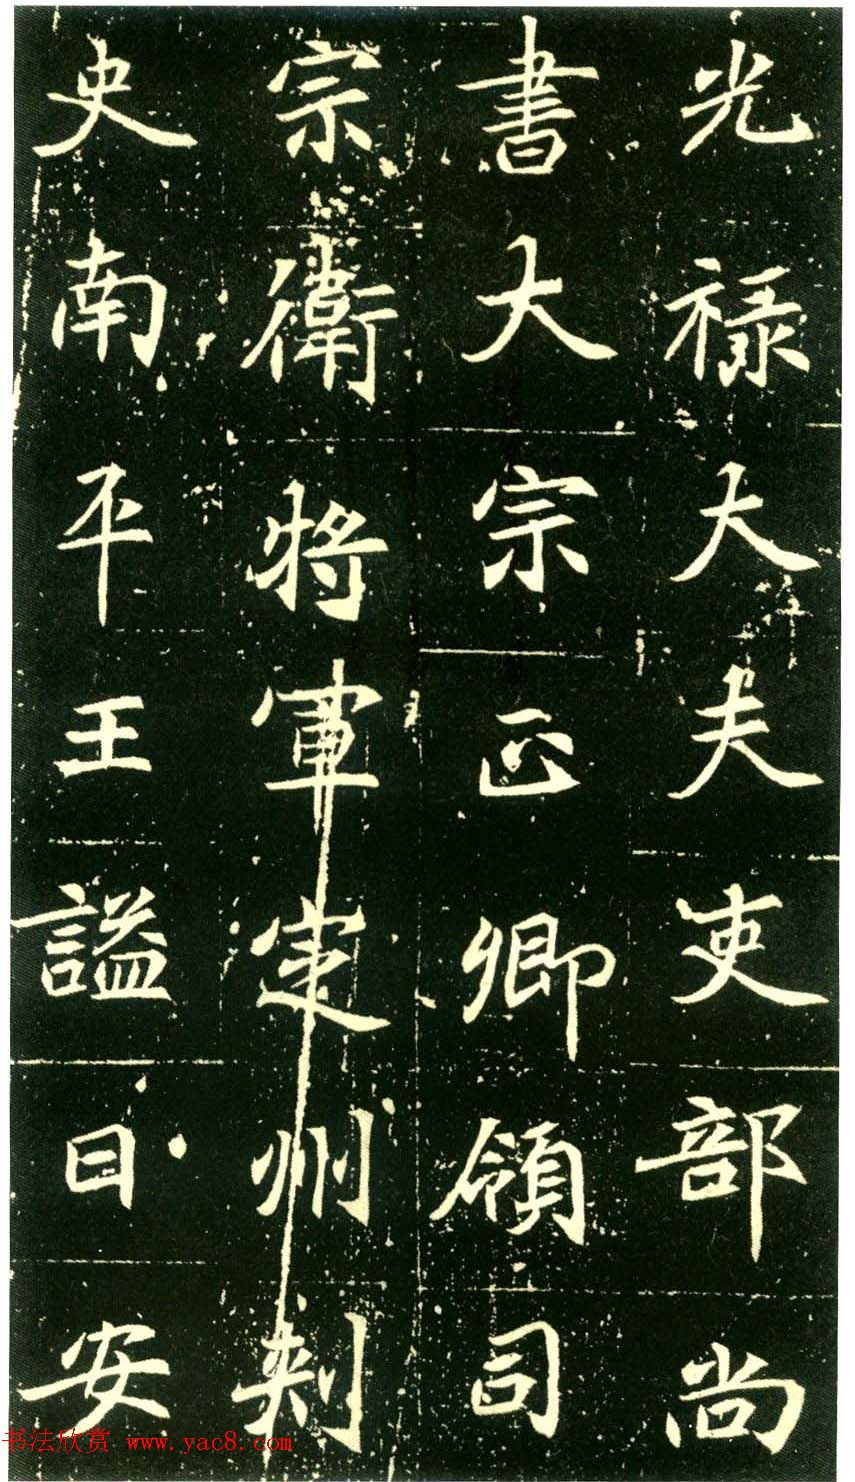 光禄大夫吏部尚
書大宗正卿領司
宗衛將軍定州刺
史南平王謚曰安
书法欣赏 www.yac8.com